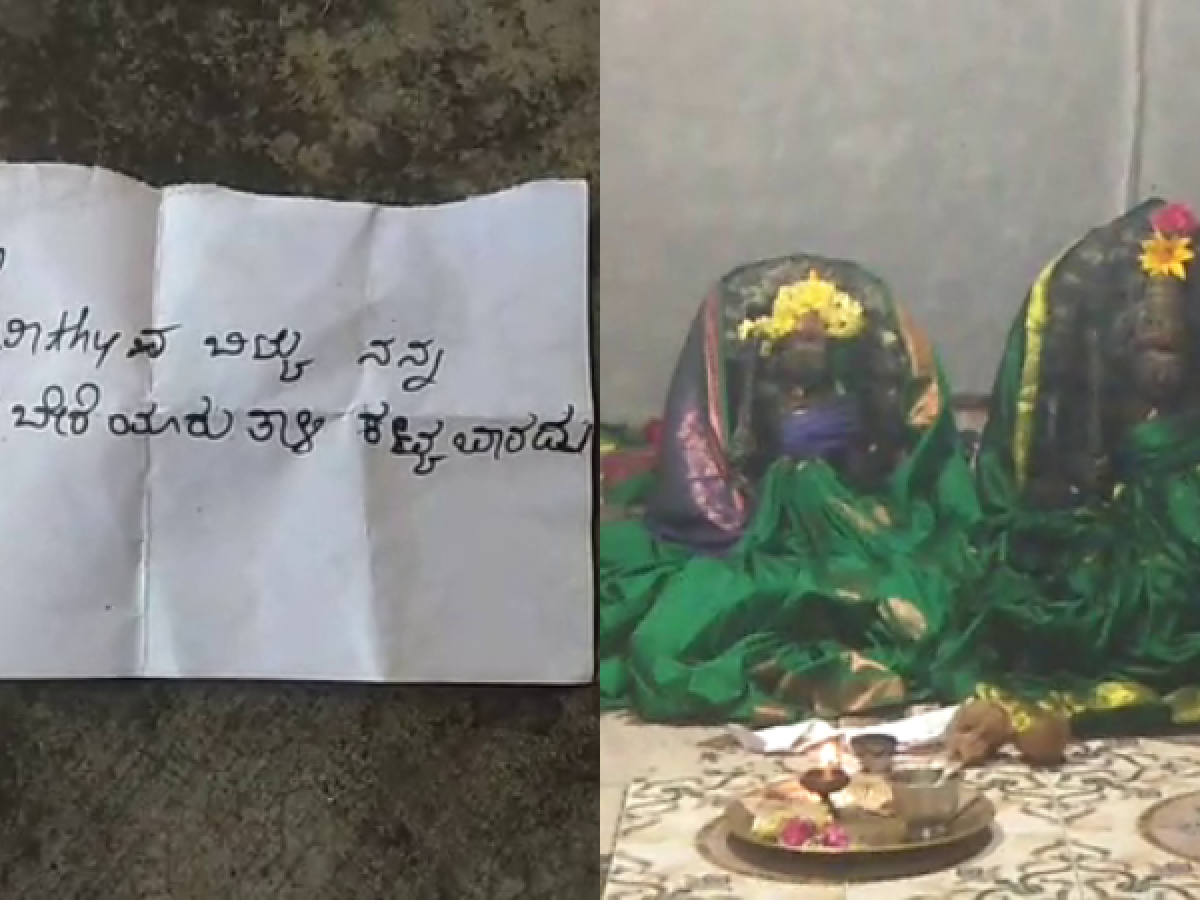 ಬಿಟ್ಟು ನನ್ನ
ಬೇರೆ ಯಾರು ತಾಳಿ ಕಟ್ಟಬಾರದು